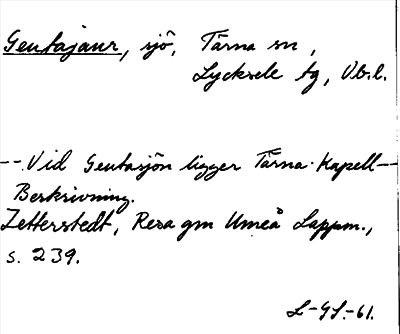 Gentajaur, sjö, Tärna sn,
Lycksele tg, Vb.l.
--. Vid Gentasjön ligger Tärna Kapell--
Berskrivning.
Zetterstedt, Resa gm Umeå Lappm.,
s. 239.
L-GS.-61.